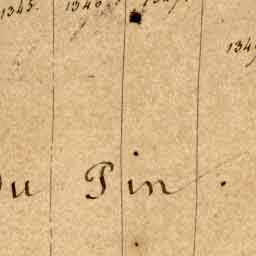 1345. 1346. 1347.
134
Du Pin .